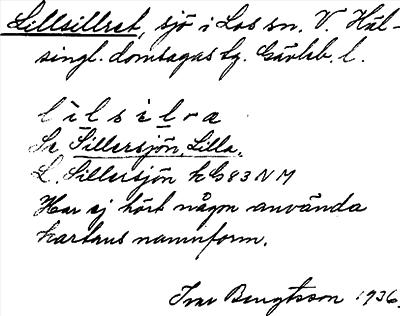 Lillsillret, sjö i Los sn. V. Häl-
singl. domsagas tg. Gävleb. l.
lìlsìlra
Se Sillersjön, Lilla.
L. Sillersjön kG83NM
Har ej hört någon använda
kartans namnform.
Ivar Bengtsson 1936.